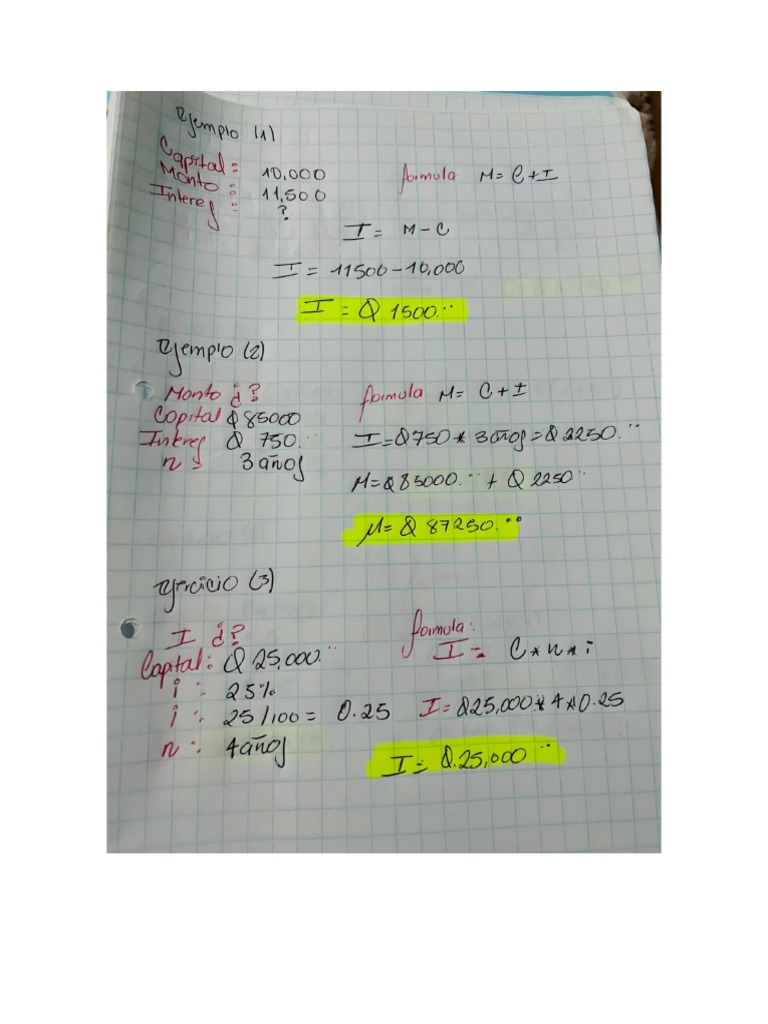 Ejemplo (1)
Capital: 10,000 formula M = C + I
Monto : 11,500
Interes : ?
I = M - C
I = 11500 - 10,000
I = Q 1500.
Ejemplo (2)
Monto ¿? formula M = C + I
Capital Q 85000
Interes Q 750. I = Q 750 * 3 años = Q 2250.
n : 3 años
M = Q 85000. + Q 2250
M = Q 87250.
Ejercicio (3)
I ¿? formula:
Captal: Q 25,000. I = C * n * i
i : 25%
i : 25/100 = 0.25 I = Q25,000 * 4 * 0.25
n : 4 años
I = Q.25,000